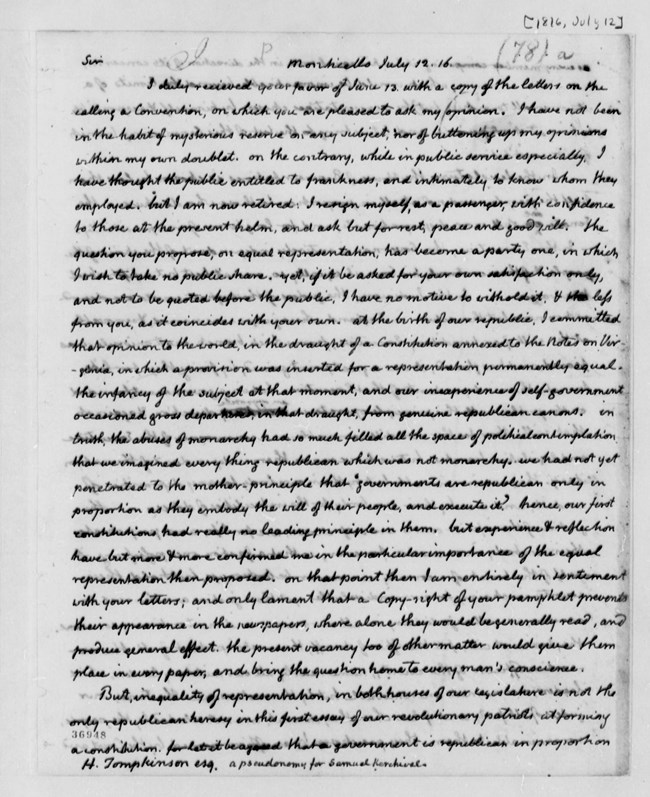 [1816, July 12]
(78) a
Sir Monticello July 12. 16.
I duly recieved your favor of June 13. with a copy of the letters on the
calling a Convention, on which you are pleased to ask my opinion. I have not been
in the habit of mysterious reserve on any subject, nor of buttoning up my opinions
within my own doublet. on the contrary, while in public service especially, I
have thought the public entitled to frankness, and intimately to know whom they
employed. but I am now retired: I resign myself, as a passenger, with confidence
to those at the present helm, and ask but for rest, peace and good will. the
question you propose, on equal representation, has become a party one, in which
I wish to take no public share. yet, if it be asked for your own satisfaction only,
and not to be quoted before the public, I have no motive to withold it, & the less
from you, as it coincides with your own. at the birth of our republic, I committed
that opinion to the world, in the draught of a Constitution annexed to the Notes on Vir-
-ginia, in which a provision was inserted for a representation permanently equal.
the infancy of the subject at that moment, and our inexperience of self-government
occasioned gross departures, in that draught, from genuine republican canons. in
truth, the abuses of monarchy had so much filled all the space of political contemplation
that we imagined every thing republican which was not monarchy. we had not yet
penetrated to the mother-principle that "governments are republican only in
proportion as they embody the will of their people, and execute it." hence, our first
constitutions had really no leading principle in them. but experience & reflection
have but more & more confirmed me in the particular importance of the equal
representation then proposed. on that point then I am entirely in sentiment
with your letters; and only lament that a Copy-right of your pamphlet prevents
their appearance in the newspapers, where alone they would be generally read, and
produce general effect. the present vacancy too of other matter would give them
place in every paper, and bring the question home to every man's conscience.
But, inequality of representation, in both houses of our legislature is not the
only republican heresy in this first essay of our revolutionary patriots at forming
36948
a constitution. for let it be agreed that a government is republican in proportion
H. Tompkinson esq. a pseudonomy for Samuel Kerchival.